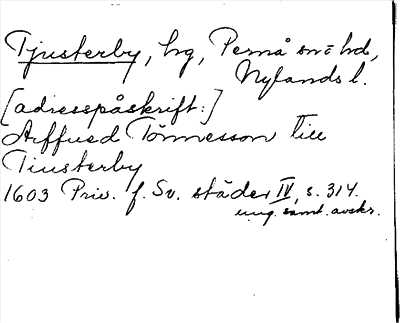 Tjusterby, hg, Pernå sn o hd,
Nylands l.
[adresspåskrift:]
Arffued Tönnesson till
Tiusterby
1603 Priv. f. Sv. städer IV, s. 314.
ung. samt. avskr.